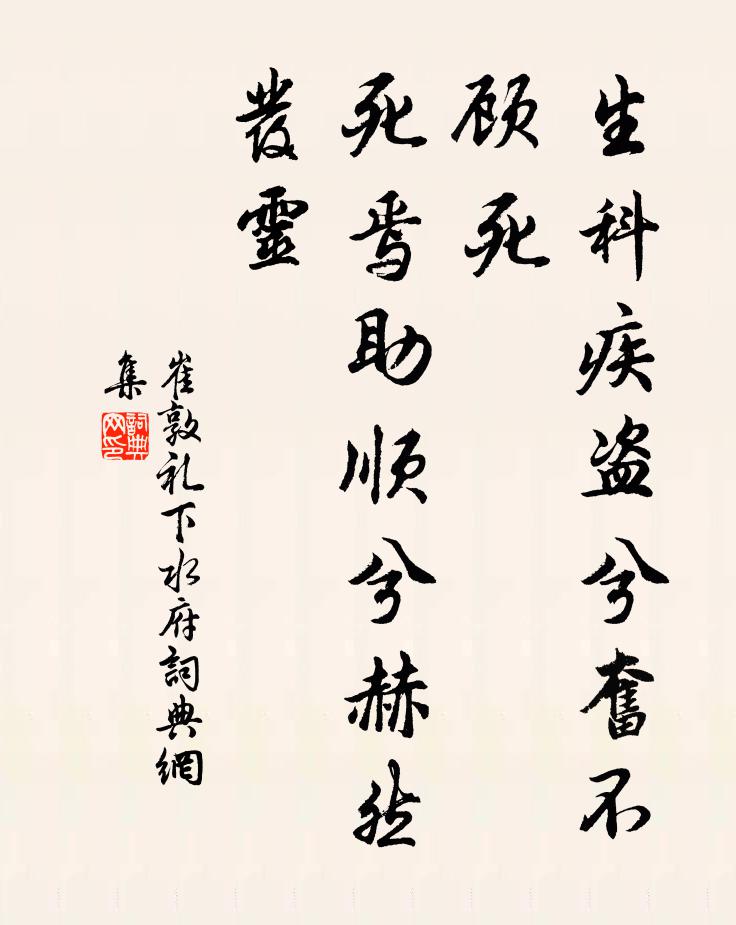 生科疾盗兮奮不
顾死
死焉助顺兮赫然
發靈
崔敦礼下水府詞典網
集
詞典网印